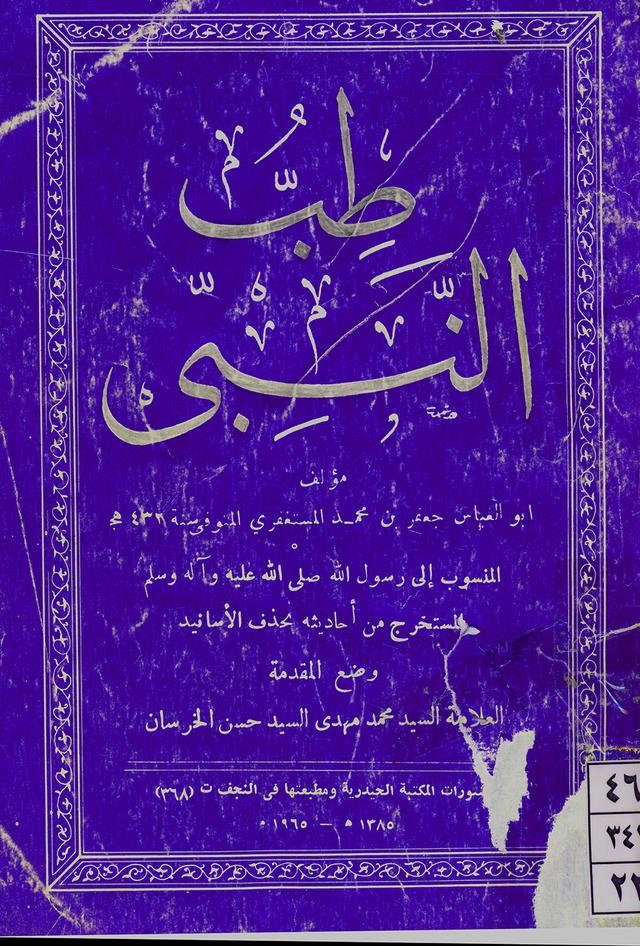 طِبُّ
النَّبِي
مؤلف
ابو العباس جعفر بن محمد المستغفري المتوفى سنة ٤٣٢ هج
المنسوب إلى رسول الله صلى الله عليه وآله وسلم
المستخرج من أحاديثه بحذف الأسانيد
وضع المقدمة
العلامة السيد محمد مهدى السيد حسن الخرسان
المكتبة الحيدرية ومطبعتها في النجف ت (٣٦٨)
١٣٨٥ ه – ١٩٦٥ م
٤٦
٣٤٤
٢٢